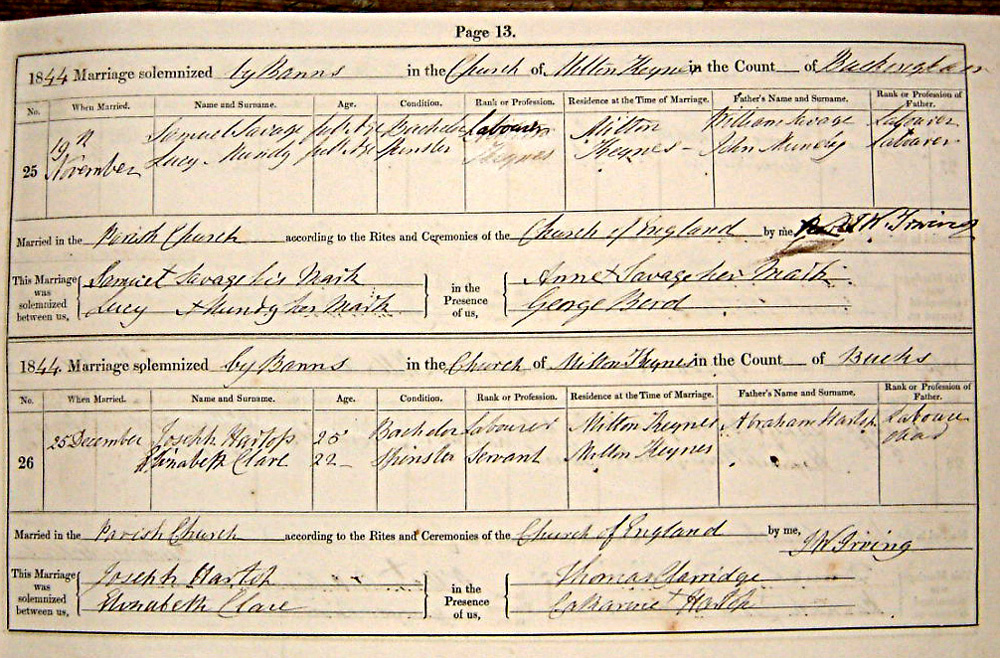 Page 13.
1844 Marriage solemnized by Banns in the Church of Milton Keynes in the Count of Buckingham
No. When Married. Name and Surname. Age. Condition. Rank or Profession. Residence at the Time of Marriage. Father's Name and Surname. Rank or Profession of Father.
19th Samuel Savage full Age Bachelor Labourer Milton William Savage Labourer
25 November Lucy Mundy full Age Spinster Keynes Keynes - John Mundy Labourer
Married in the Parish Church according to the Rites and Ceremonies of the Church of England by me, J W Irving
This Marriage was solemnized between us, Samuel + Savage his Mark in the Presence of us, Anne + Savage her Mark
Lucy + Mundy her Mark George Bord
1844 Marriage solemnized by Banns in the Church of Milton Keynes in the Count of Bucks
No. When Married. Name and Surname. Age. Condition. Rank or Profession. Residence at the Time of Marriage. Father's Name and Surname. Rank or Profession of Father.
25 December Joseph Hartop 25 Bachelor Labourer Milton Keynes Abraham Hartop Labourer
26 Elizabeth Clare 22 Spinster Servant Milton Keynes dead
Married in the Parish Church according to the Rites and Ceremonies of the Church of England by me, J W Irving
This Marriage was solemnized between us, Joseph Hartop in the Presence of us, Thomas
Elizabeth Clare Catharine + Hartop